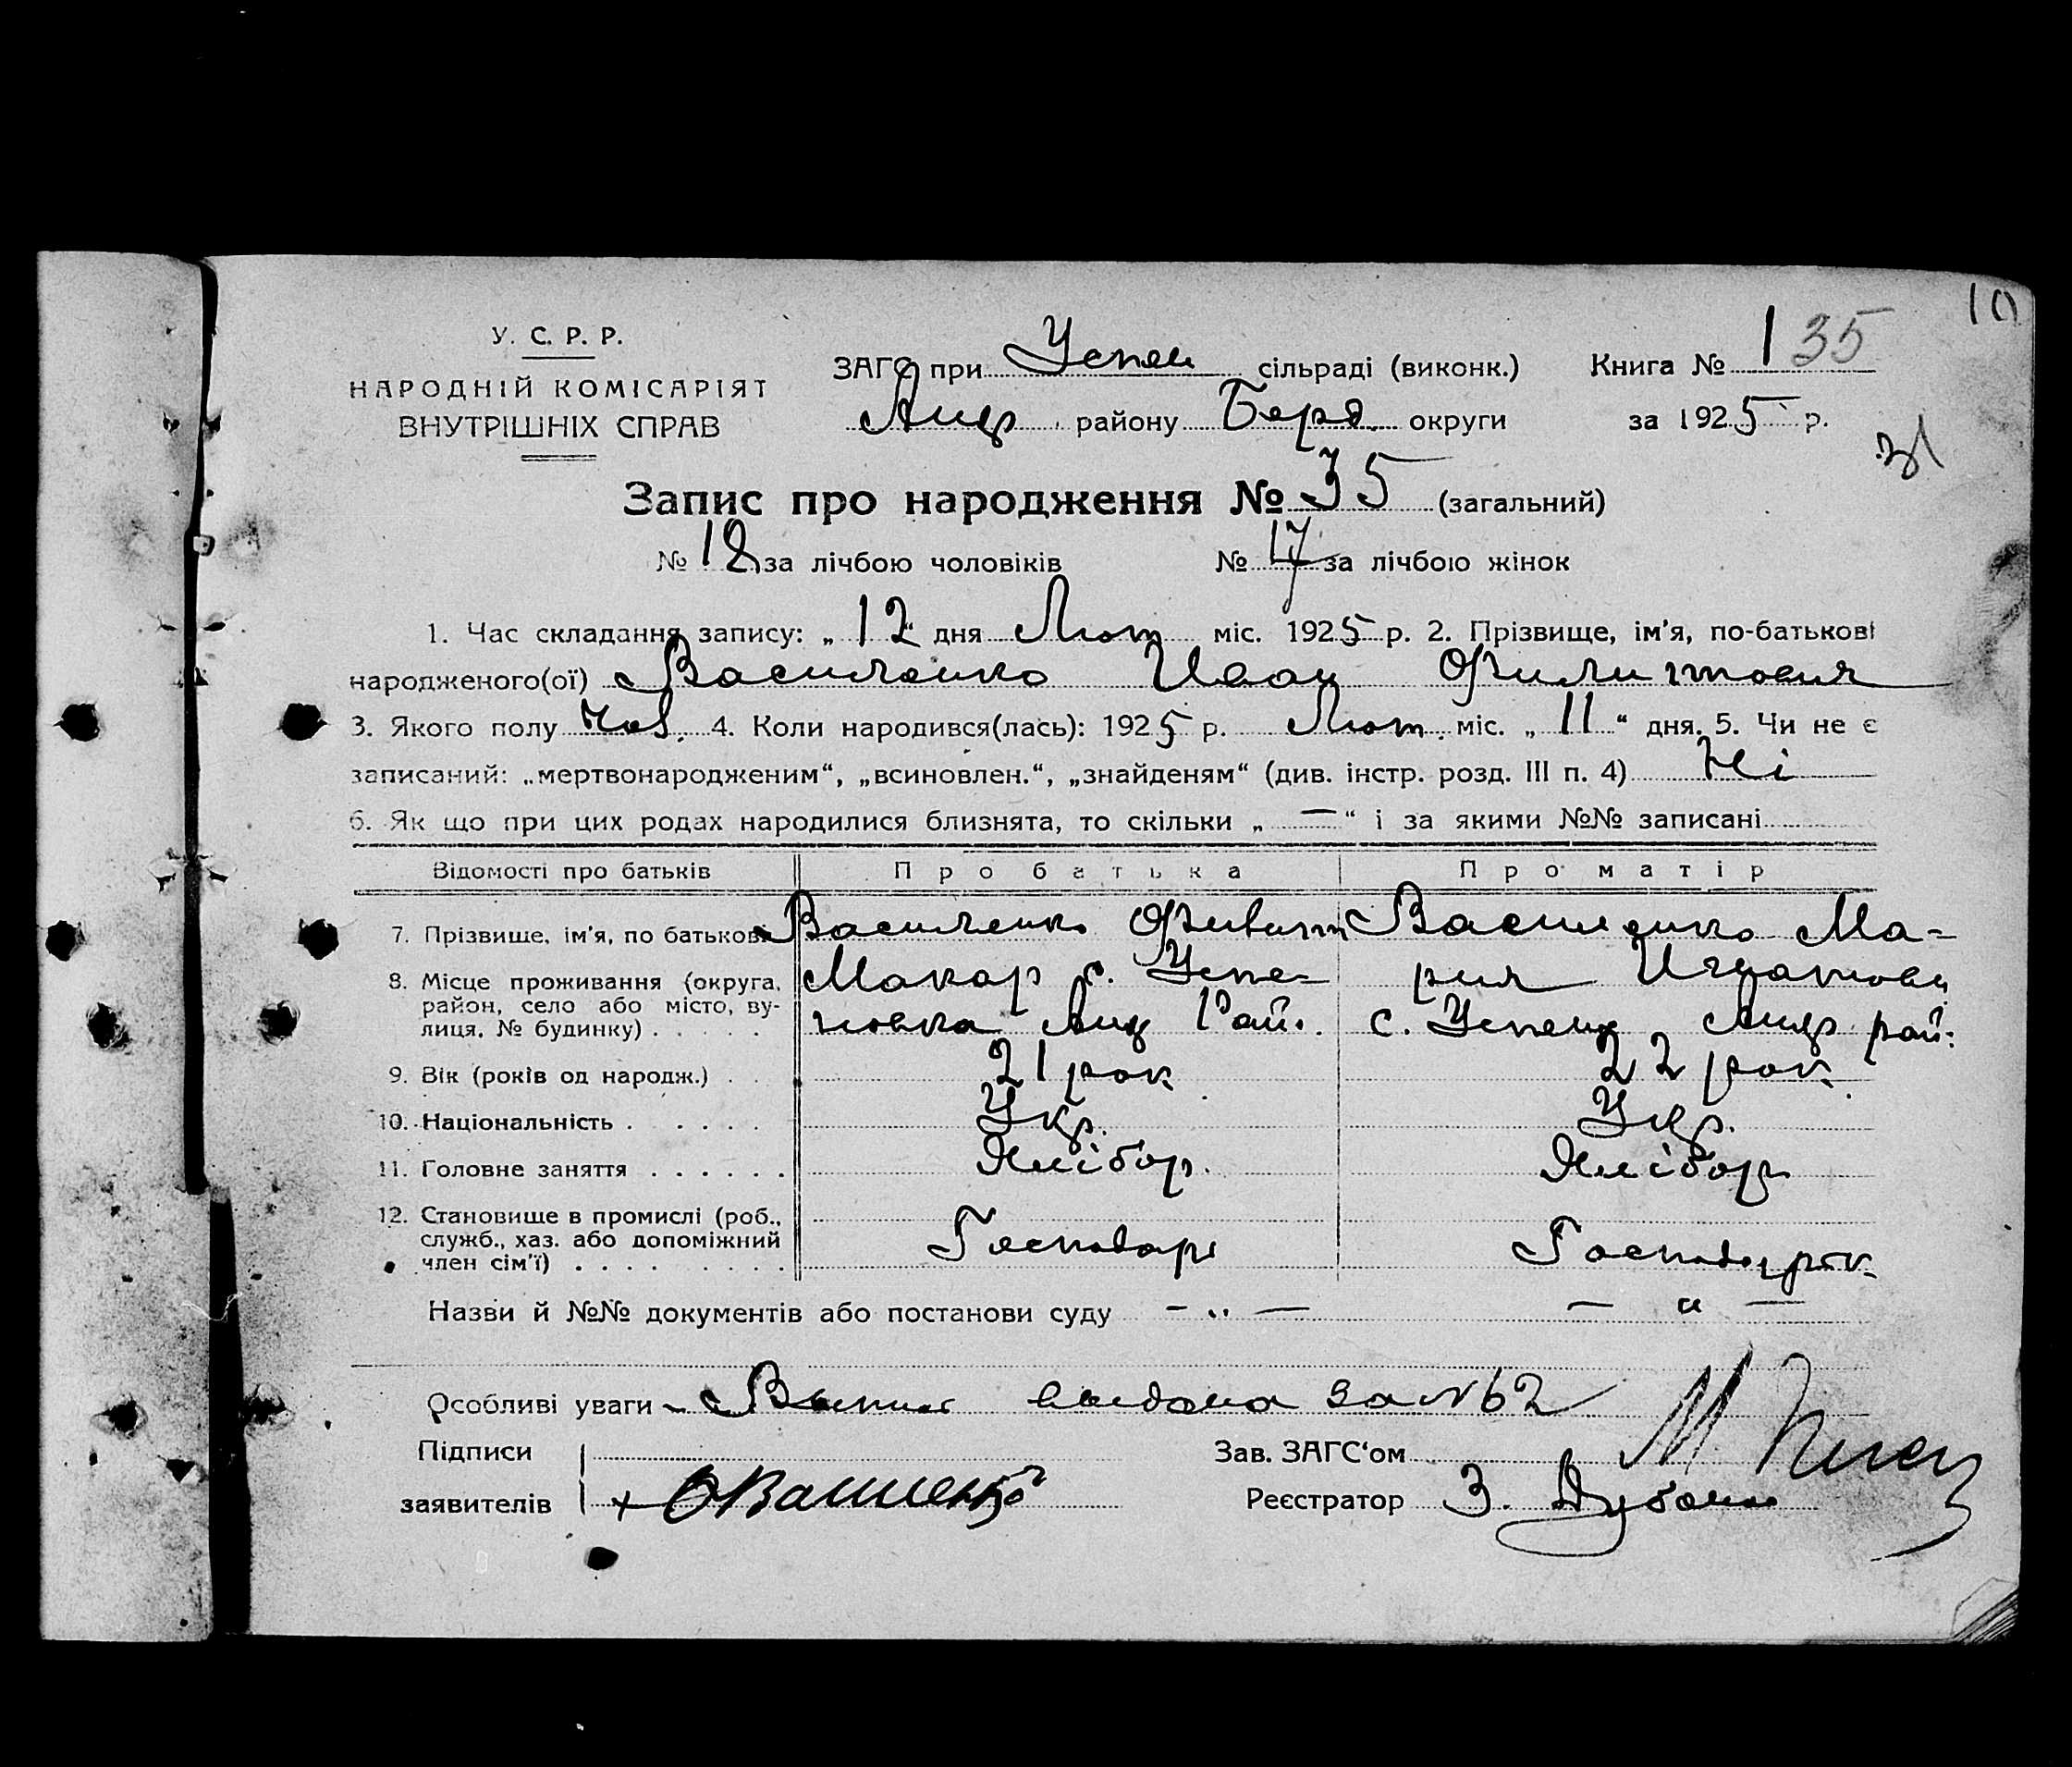 10
У. С. Р. Р.
НАРОДНІЙ КОМІСАРІЯТ
ВНУТРІШНІХ СПРАВ
ЗАГС при Успен сільраді (виконк.) Книга № 1 35
Анд району Берд. округи за 1925 р.
31
Запис про народження № 35 (загальний)
№ 18 за лічбою чоловіків № 17 за лічбою жінок
1. Час складання запису: „12“ дня Лют міс. 1925 р. 2. Прізвище, ім'я, по-батькові
народженого(ої) Василенко Иван Филиппович
3. Якого полу Чол. 4. Коли народився(лась): 1925 р. Лют. міс. „11“ дня. 5. Чи не є
записаний: „мертвонародженим“, „всиновлен.“, „знайденям“ (див. інстр. розд. III п. 4) Ні
6. Як що при цих родах народилися близнята, то скільки „—“ і за якими №№ записані
Відомості про батьків Про батька Про матір
7. Прізвище, ім'я, по батькові Василенко Филипп Василенко Ма-
8. Місце проживання (округа, Макар с. Успе- рия Игнатовн
район, село або місто, ву-
лиця, № будинку) новка Анд Рай. с. Успен Андр рай.
9. Вік (років од народж.) 21 рок 22 рок
10. Національність Укр. Укр.
11. Головне заняття Хлібор. Хлібор
12. Становище в промислі (роб.,
служб., хаз. або допоміжний
член сім'ї) Господарь Господарк
Назви й №№ документів або постанови суду — „ — — „ —
Особливі уваги Выпис выдана за №62
Підписи Зав. ЗАГС‘ом М
заявителів Реєстратор З.